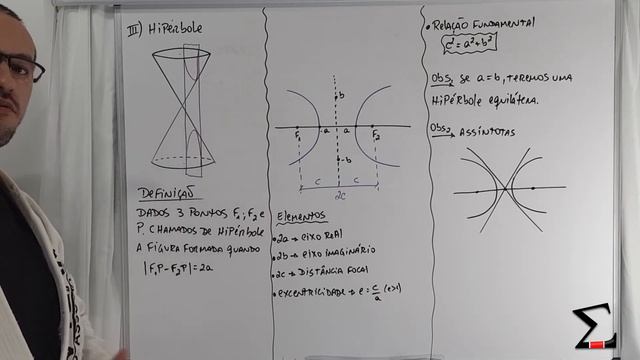 III) HIPÉRBOLE
DEFINIÇÃO
DADOS 3 PONTOS F₁, F₂ E
P. CHAMADOS DE HIPÉRBOLE
A FIGURA FORMADA QUANDO
|F₁P - F₂P| = 2a
b
a a
F₁ F₂
-b
c c
2c
ELEMENTOS
• 2a → EIXO REAL
• 2b → EIXO IMAGINÁRIO
• 2c → DISTÂNCIA FOCAL
• EXCENTRICIDADE → e = c/a (e>1)
• RELAÇÃO FUNDAMENTAL
c² = a² + b²
OBS₁ SE a = b, TEREMOS UMA
HIPÉRBOLE EQUILÁTERA.
OBS₂ ASSÍNTOTAS
Σ